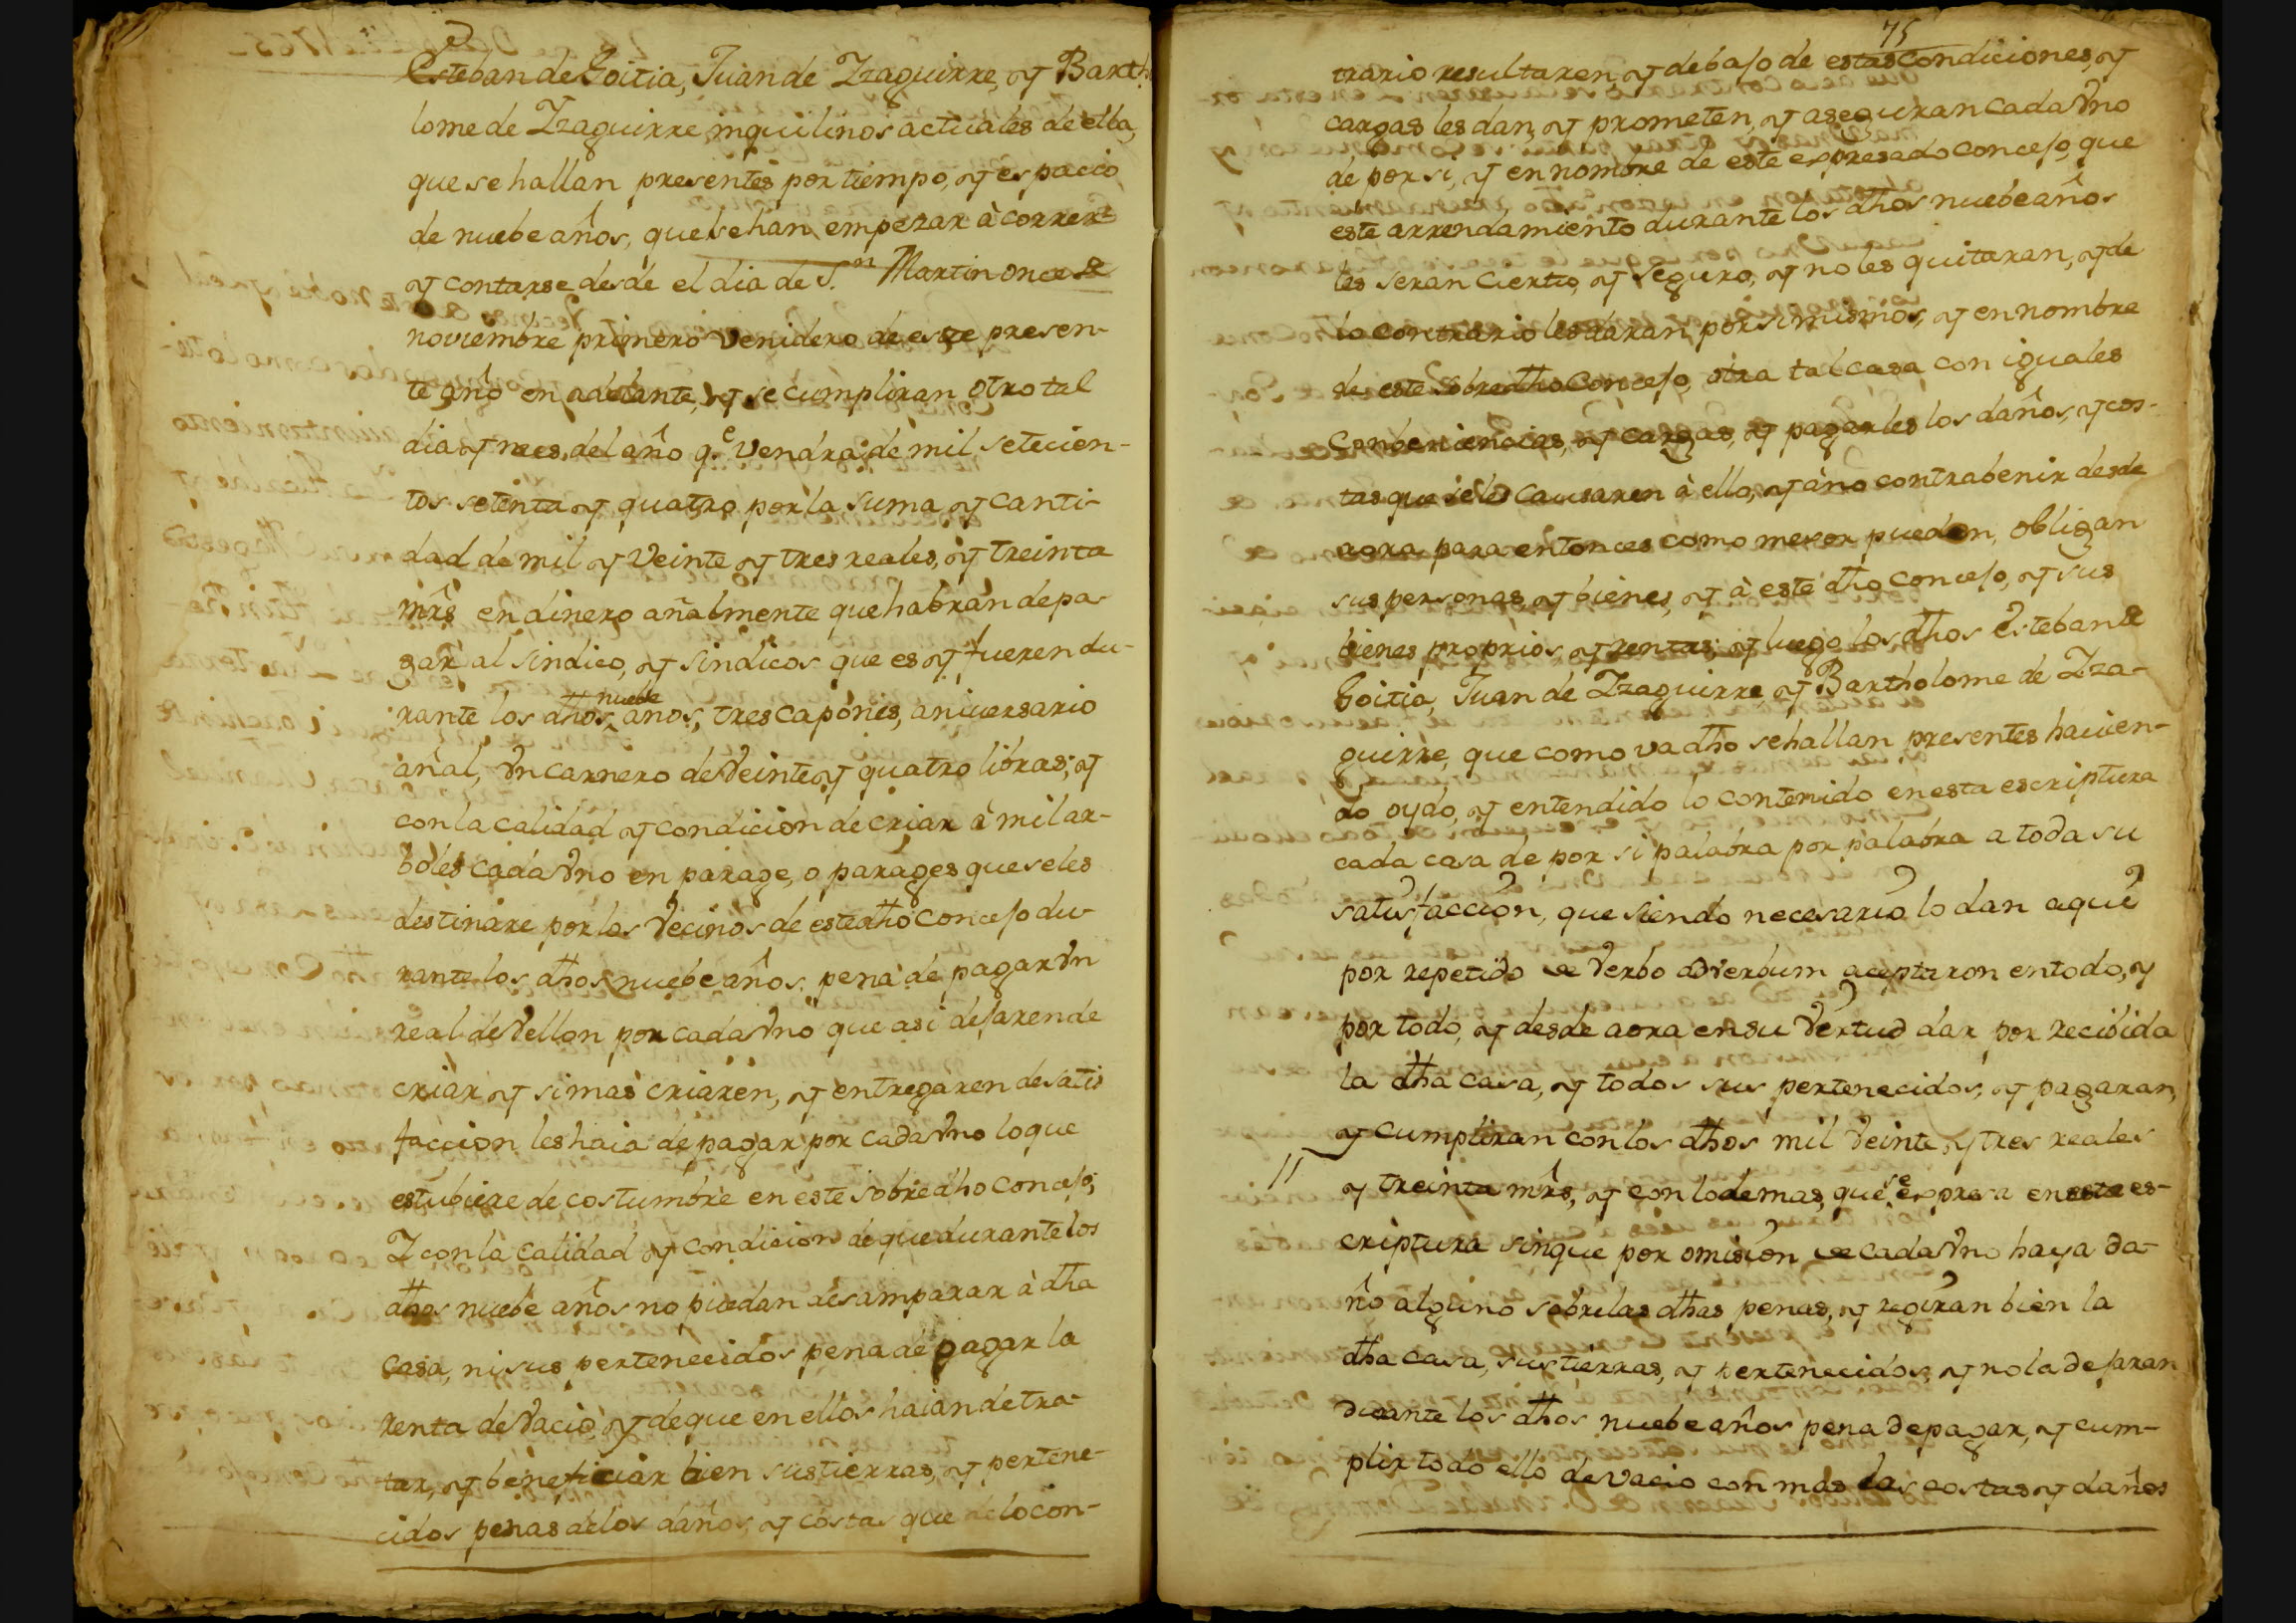 Esteban de Goitia, Juan de Yzaguirre, y Barth.
lome de Yzaguirre inquilinos actuales de ella,
que se hallan presentes por tiempo, y espacio
de nuebe años, que se han empezar à correr
y contarse desde el dia de S.n Martin once de
noviembre primero venidero de este presen-
te año en adelante, y se cumpliran otro tal
dia y mes del año q.e vendra de mil setecien-
tos setenta y quatro por la suma y canti-
dad de mil y veinte y tres reales, y treinta
mrs en dinero añalmente que habran de pa-
gar al sindico, y sindicos que es y fueren du-
rante los dhos nuebe años, tres capones, aniversario
añal, Vn carnero de Veinte y quatro libras; y
con la calidad y condicion de criar à mil ar-
boles cada Vno en parage, o parages que seles
destinare por los Vecinos de este dho concejo du-
rante los dhos nuebe años, pena de pagar Vn
real de Vellon por cada Vno que asi dejaren de
criar y si mas criaren, y entregaren de satis
faccion les haia de pagar por cada Vno lo que
estubiere de costumbre en este sobre dho concejo;
Y con la calidad y condicion de que durante los
dhos nuebe años no puedan desamparar à dha
casa, ni sus pertenecidos pena de pagar la
renta de Vacio, y de que en ellos haian de tra-
tar, y beneficiar bien sus tierras, y pertene-
cidos penas de los daños, y costas que de lo con-
75
trario resultaren, y debajo de estas condiciones, y
cargas les dan, y prometen, y aseguran cada Vno
de por si, y en nombre de este expresado concejo, que
este arrendamiento durante los dhos nuebe años
les seran cierto, y seguro, y no les quitaran, y de
lo contrario les daran por si mismos, y en nombre
de este sobredho Concejo, otra tal casa con iguales
Conbeniencias, y cargas, y pagarles los daños, y cos-
tas que se les causaren à ello, y à no contrabenir desde
aora para entonces como mejor pueden, obligan
sus personas, y bienes, y à este dho concejo, y sus
bienes proprios, y rentas; y luego los dhos Esteban de
Goitia, Juan de Yzaguirre, y Bartholome de Yza-
guirre, que como va dho se hallan presentes havien-
do oydo, y entendido lo contenido en esta escriptura
cada casa de por si palabra por palabra a toda su
satisfaccion, que siendo necesario lo dan aqui
por repetido de Verbo adverbum aceptaron en todo, y
por todo, y desde aora en su Vertud dar por recibida
la dha casa, y todos sus pertenecidos, y pagaran,
y cumpliran con los dhos mil Veinte, y tres reales
y treinta mrs, y con lo demas, que se expresa en esta es-
criptura sin que por omision de cada Vno haya da-
ño alguno sobre las dhas penas, y regiran bien la
dha casa, sus tierras, y pertenecidos, y no la dejaran
durante los dhos nuebe años pena de pagar, y cum-
plir todo ello de vacio con mas las costas y daños